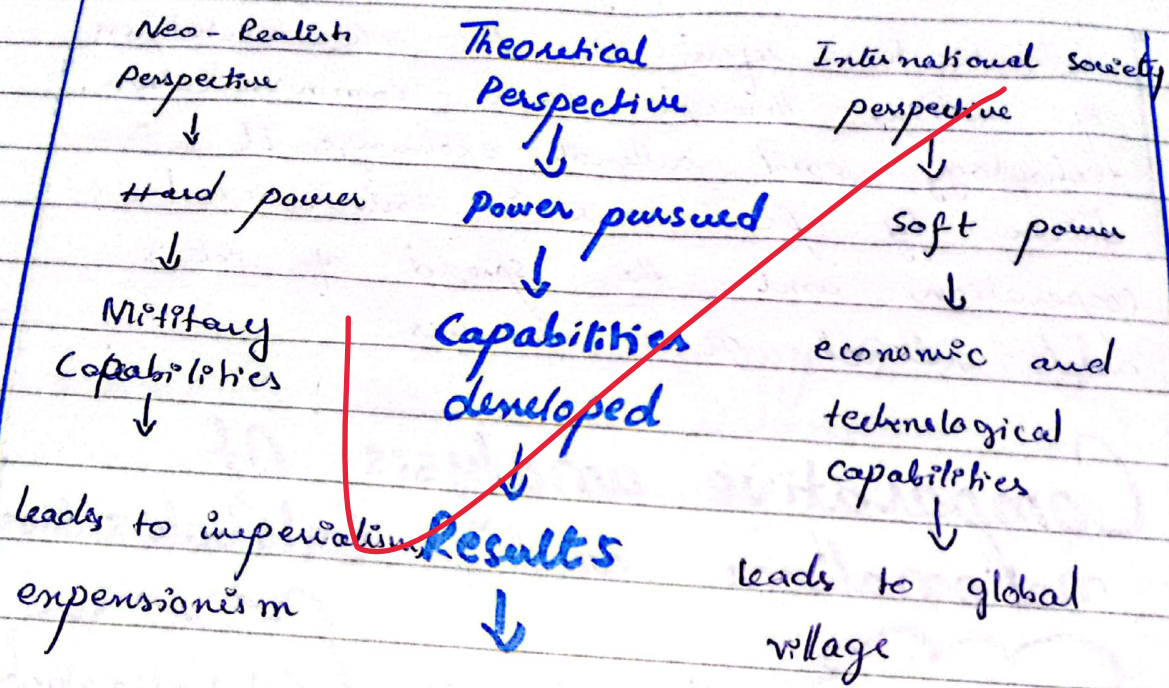 Neo-Realists
Perspective
↓
Hard power
↓
Mititary
Capabilities
↓
leads to imperialism,
expensionism
Theoretical
Perspective
↓
Power pursued
↓
Capabilities
developed
↓
Results
↓
International society
perspective
↓
Soft power
↓
economic and
technological
Capabilities
↓
leads to global
village